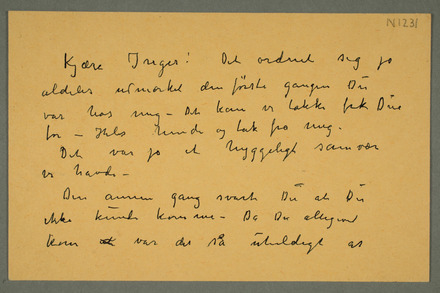 N1231
Kjære Inger! Det ordnet sig jo
aldeles utmerket den første gangen Du
var hos mig – Det kan vi takke frk Due
for – Hils hende og tak fra mig.
Det var jo et hyggeligt samvær
vi havde –
Den annen gang svarte Du at Du
ikke kunde komme – Da Du allegivel
kom var det så uheldigt at